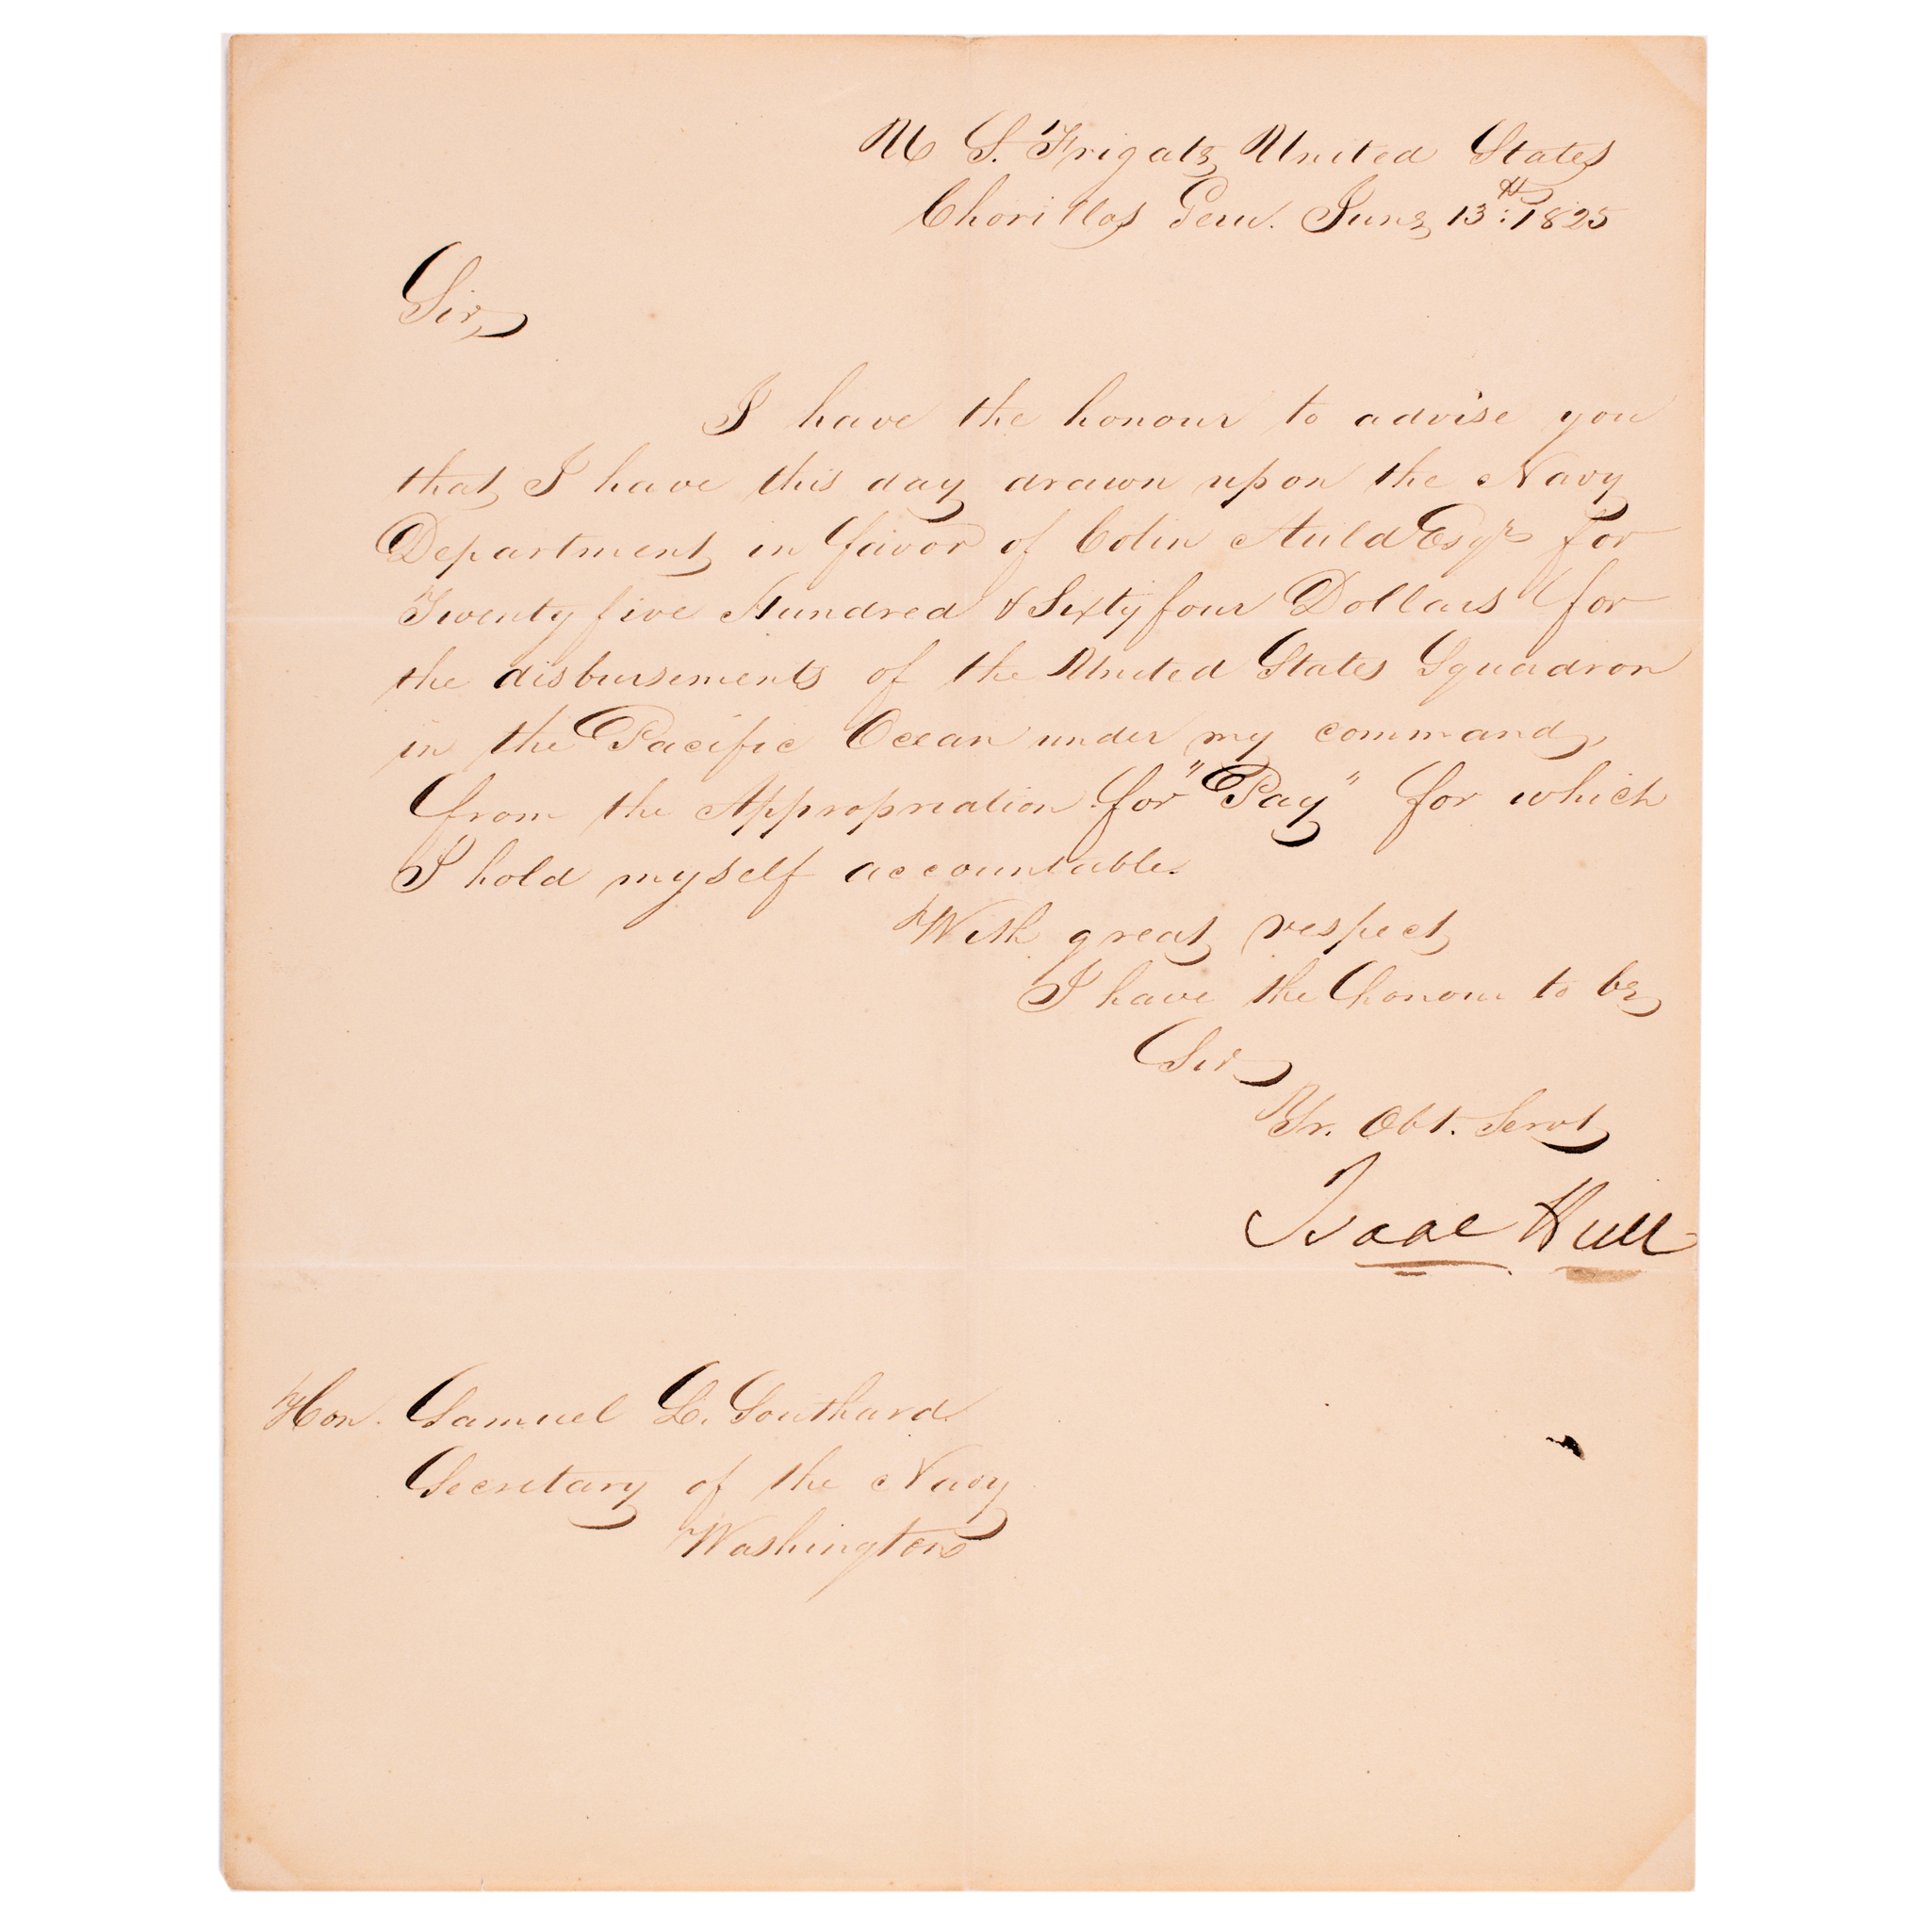 U S. Frigate United States
Chorillos Peru. June 13th: 1825
Sir,
I have the honour to advise you
that I have this day drawn upon the Navy
Department in favor of Colin Auld Esqr for
Twenty five Hundred & Sixty four Dollars for
the disbursements of the United States Squadron
in the Pacific Ocean under my command,
from the Appropriation for "Pay" for which
I hold myself accountable.
With great respect
I have the honour to be
Sir,
Yr. Obt. Servt
Isaac Hull
Hon. Samuel L. Southard
Secretary of the Navy
Washington